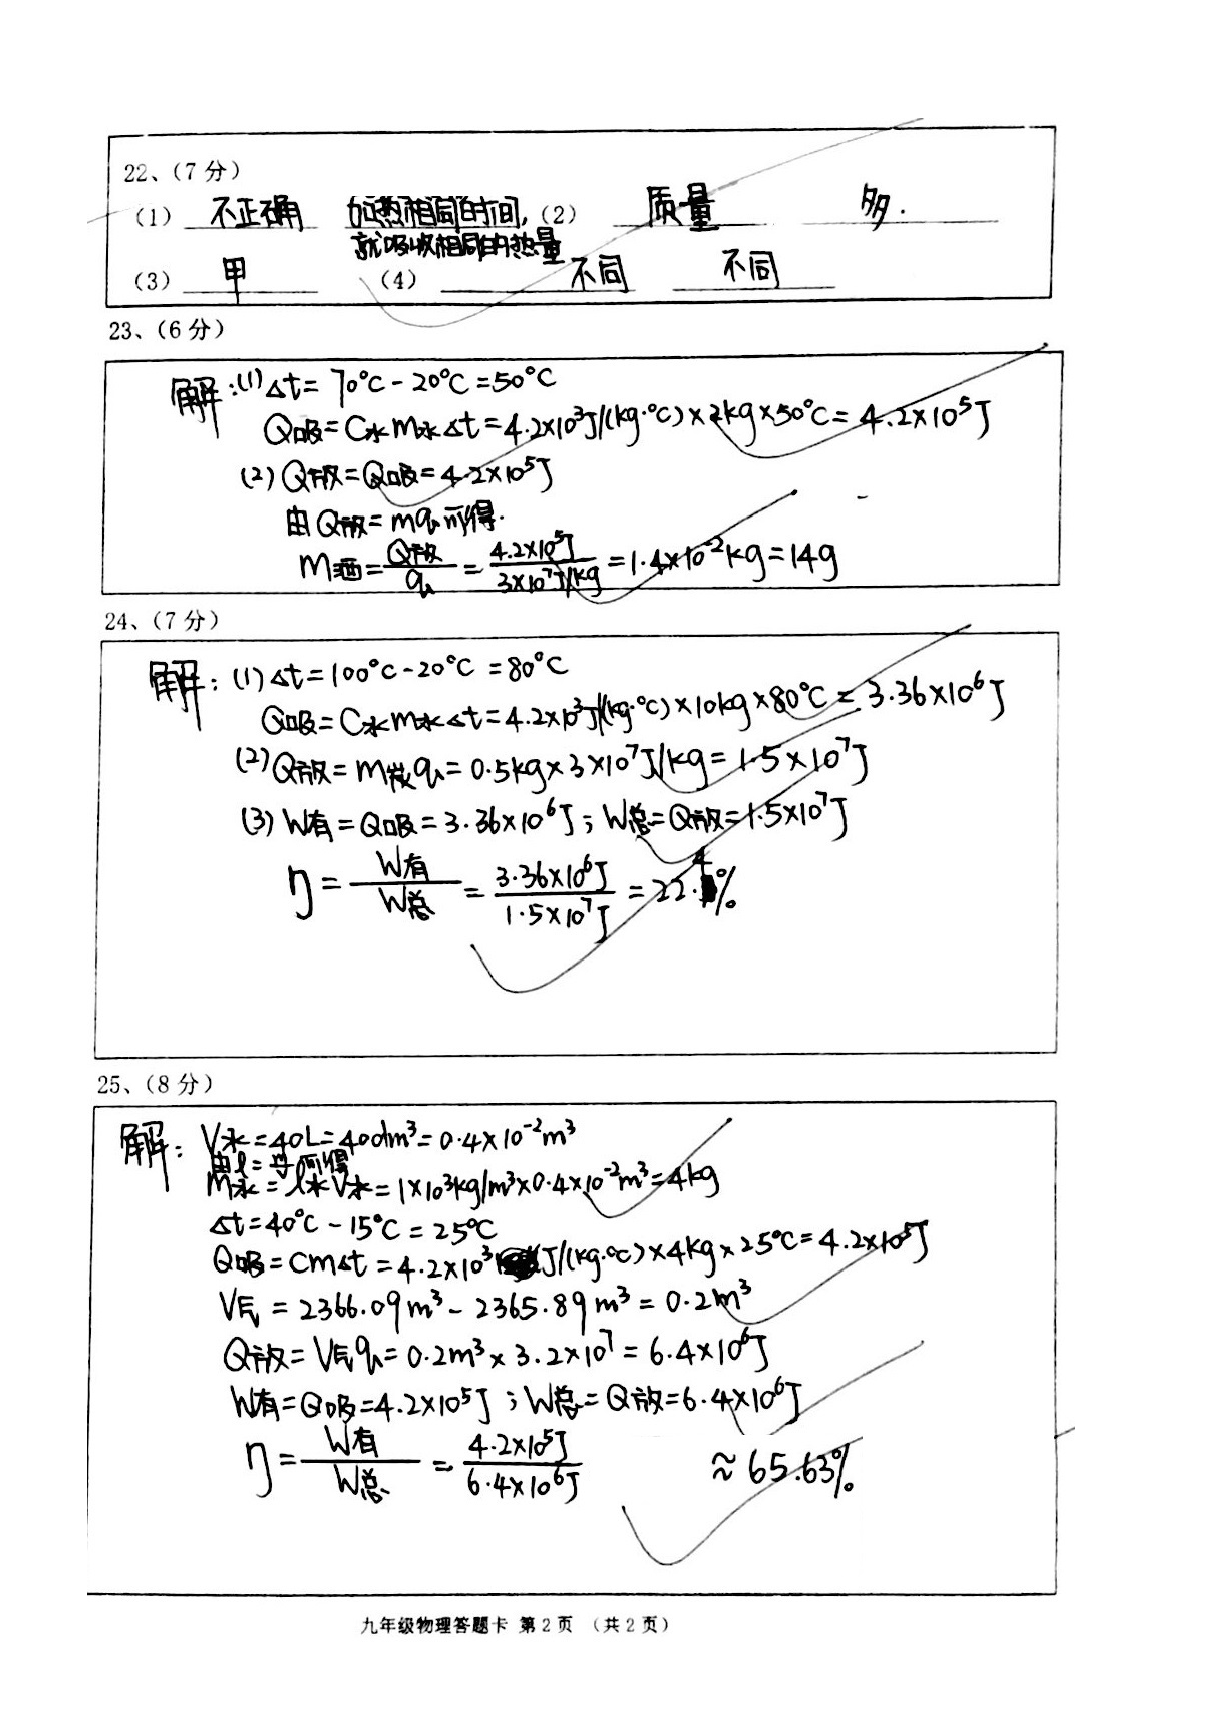 22、(7分)
(1) 不正确 加热相同的时间, (2) 质量 多.
就吸收相同的热量
(3) 甲 (4) 不同 不同
23、(6分)
解:(1) Δt = 70°C - 20°C = 50°C
Q吸 = C水 m水 Δt = 4.2×10³J/(kg·°C) × 2kg × 50°C = 4.2×10⁵J
(2) Q放 = Q吸 = 4.2×10⁵J
由 Q放 = mq 可得.
m酒 = Q放/q = 4.2×10⁵J/3×10⁷J/kg = 1.4×10⁻²kg = 14g
24、(7分)
解: (1) Δt = 100°C - 20°C = 80°C
Q吸 = C水 m水 Δt = 4.2×10³J/(kg·°C) × 10kg × 80°C = 3.36×10⁶J
(2) Q放 = m炭 q = 0.5kg × 3×10⁷J/kg = 1.5×10⁷J
(3) W有 = Q吸 = 3.36×10⁶J ; W总 = Q放 = 1.5×10⁷J
η = W有/W总 = 3.36×10⁶J/1.5×10⁷J = 22.4%
25、(8分)
解: V水 = 40L = 40dm³ = 0.4×10⁻²m³
由ρ = m/V 可得
m水 = ρ水V水 = 1×10³kg/m³ × 0.4×10⁻²m³ = 4kg
Δt = 40°C - 15°C = 25°C
Q吸 = cmΔt = 4.2×10³J/(kg·°C) × 4kg × 25°C = 4.2×10⁵J
V气 = 2366.09m³ - 2365.89m³ = 0.2m³
Q放 = V气q = 0.2m³ × 3.2×10⁷ = 6.4×10⁶J
W有 = Q吸 = 4.2×10⁵J ; W总 = Q放 = 6.4×10⁶J
η = W有/W总 = 4.2×10⁵J/6.4×10⁶J ≈ 65.63%
九年级物理答题卡 第2页 (共2页)